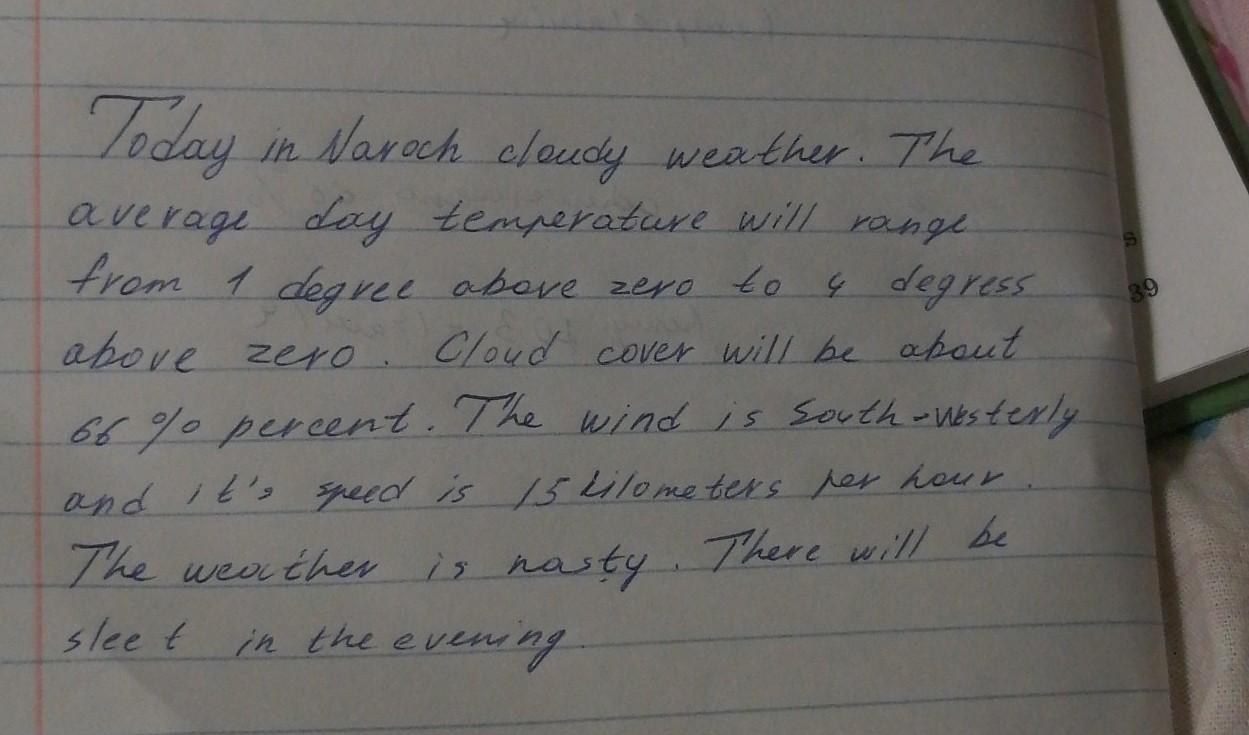 Today in Naroch cloudy weather. The
average day temperature will range
from 1 degree above zero to 4 degress
above zero. Cloud cover will be about
66 % percent. The wind is South-westerly
and it's speed is 15 kilometers per hour.
The weather is nasty. There will be
sleet in the evening.
s
39